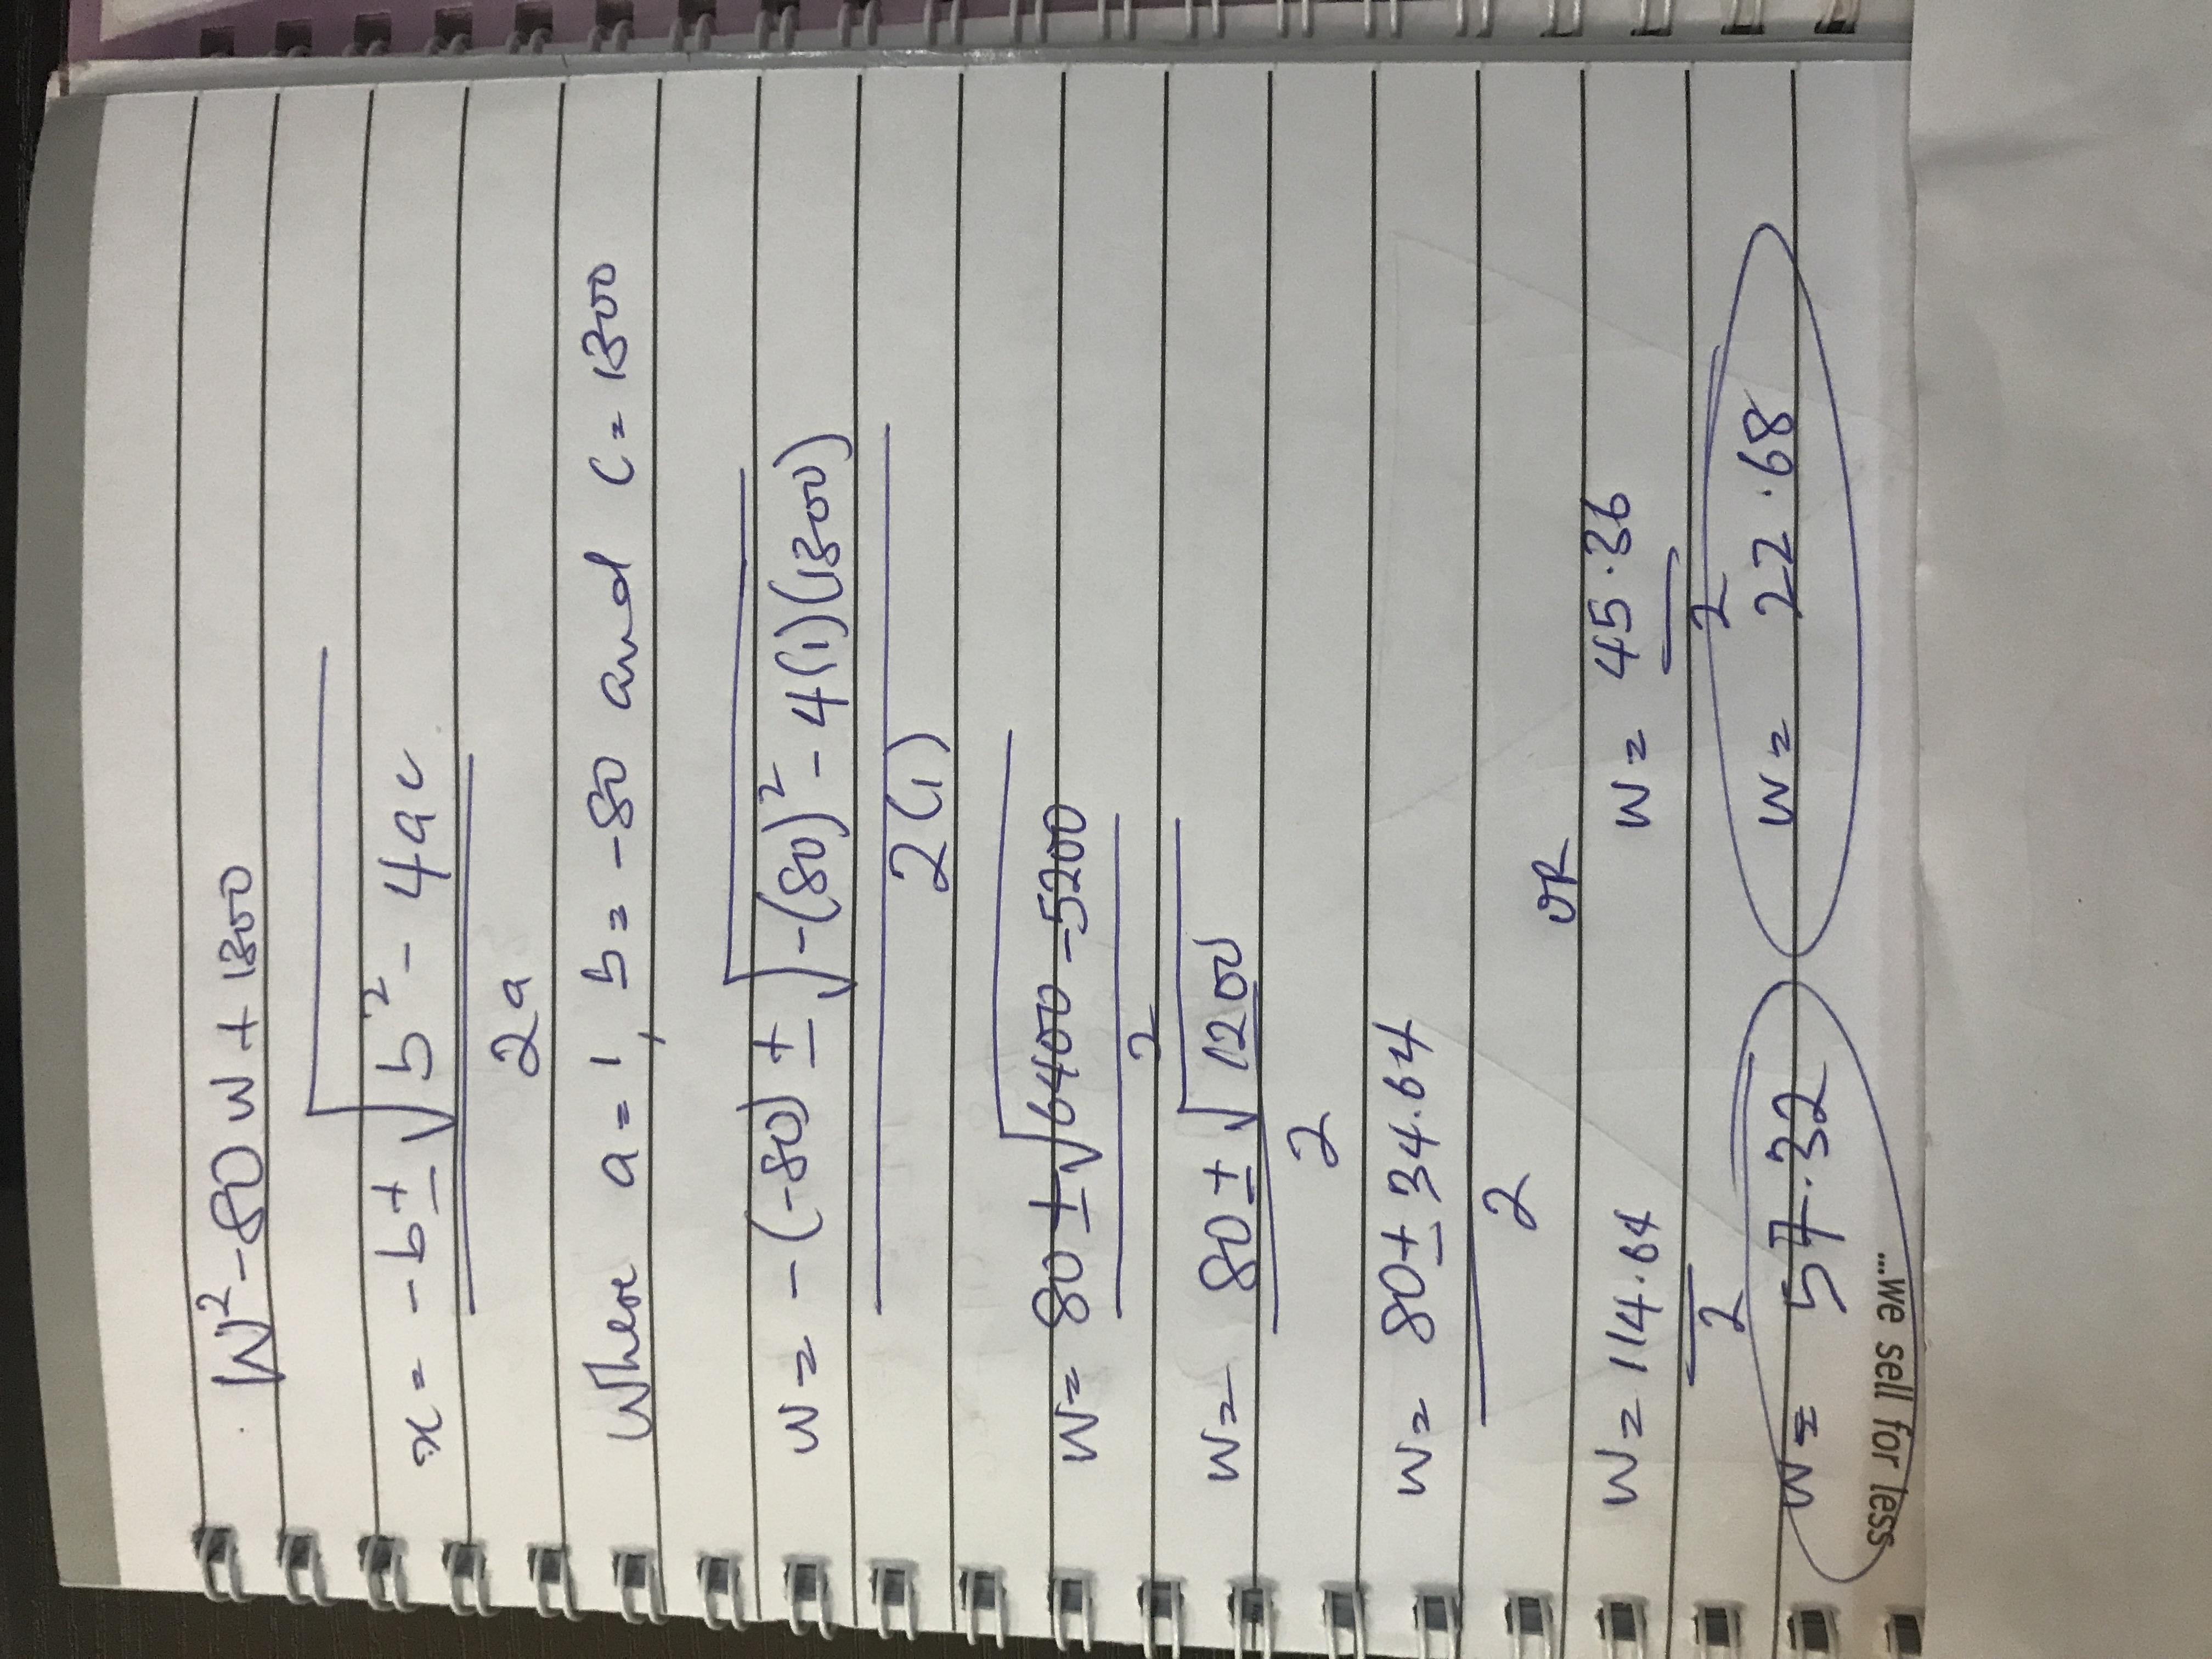 W² - 80w + 1300
x = -b ± √b² - 4ac
2a
Where a = 1, b = -80 and c = 1300
w = -(-80) ± √-(80)² - 4(1)(1300)
2(1)
w = 80 ± √6400 - 5200
2
w = 80 ± √1200
2
w = 80 ± 34.64
2
OR
w = 114.64 w = 45.36
2 2
w = 57.32 w = 22.68
...we sell for less